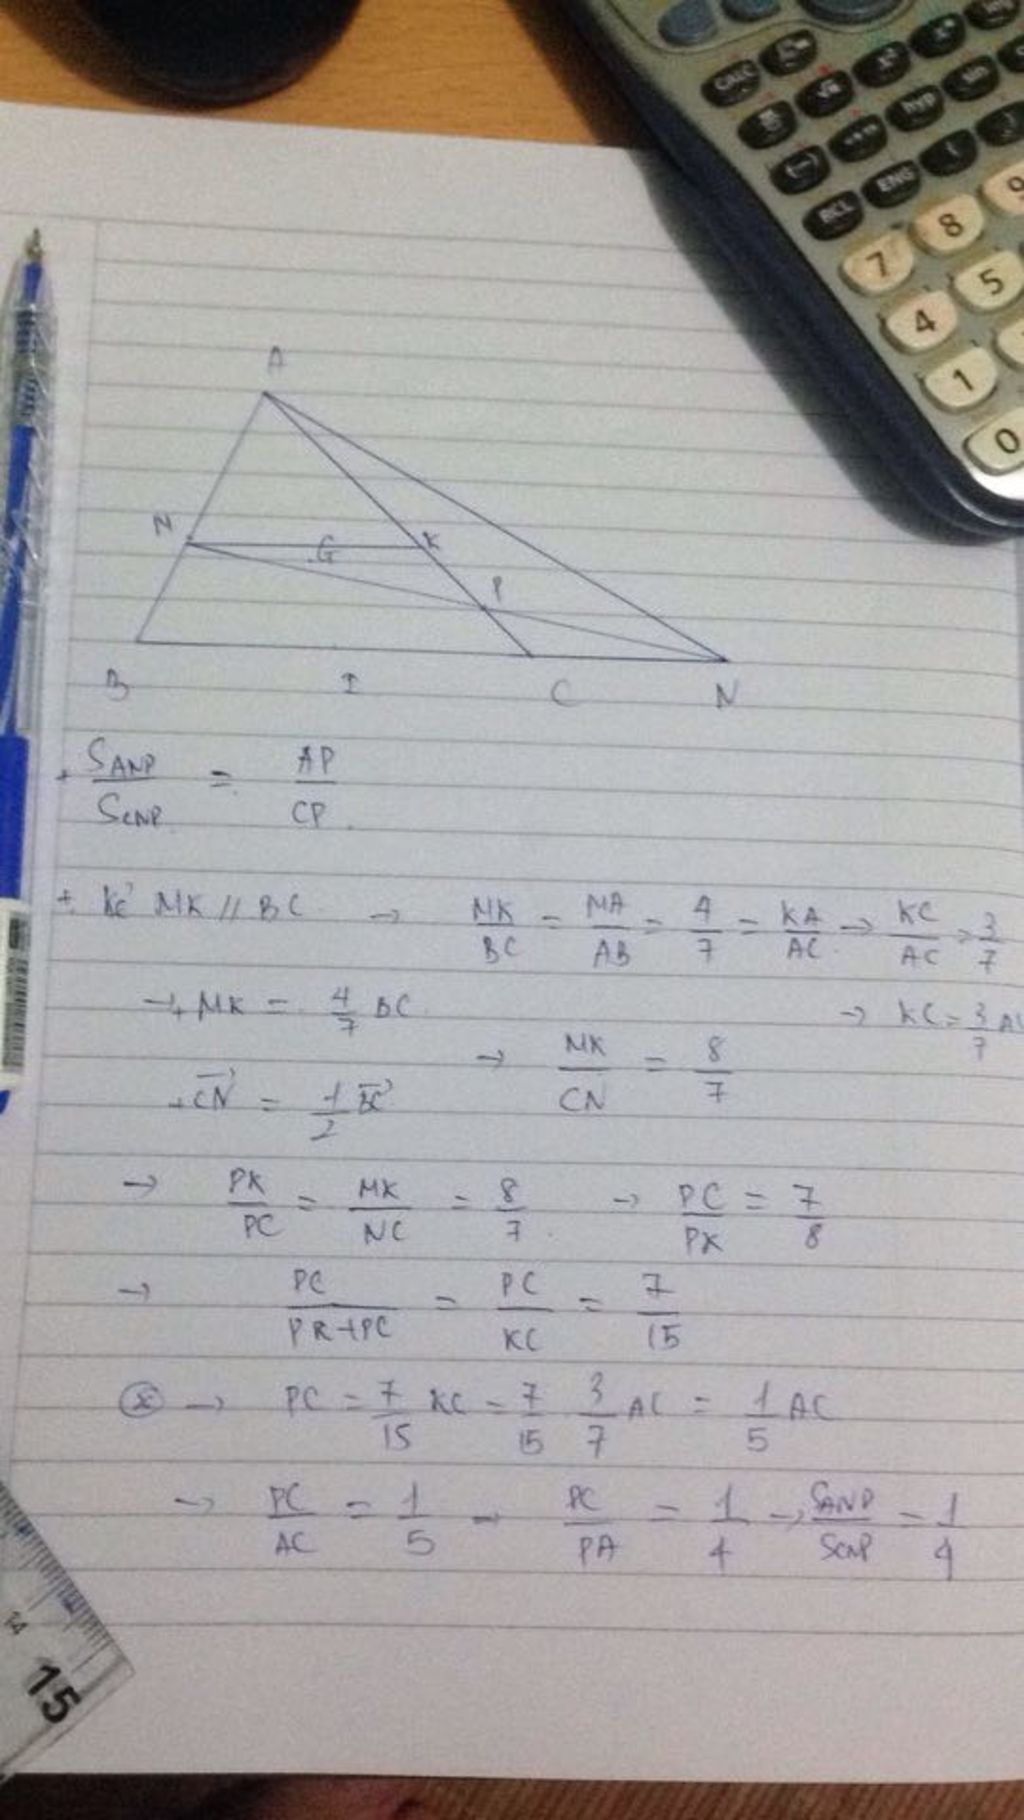 CALC
√x
x²
x^
log
hyp
sin
(-)
RCL
ENG
(
7
8
9
4
5
1
0
A
N
G
K
P
B
I
C
N
+ S_ANP / S_CNP = AP / CP
+ Kẻ MK // BC → MK/BC = MA/AB = 4/7 = KA/AC → KC/AC = 3/7
→ + MK = 4/7 BC → KC = 3/7 AC
→ MK/CN = 8/7
+ CN = 1/2 BC
→ PK/PC = MK/NC = 8/7 → PC/PK = 7/8
→ PC/PK+PC = PC/KC = 7/15
→ PC = 7/15 KC = 7/15 3/7 AC = 1/5 AC
→ PC/AC = 1/5 → PC/PA = 1/4 → S_ANP/S_CNP = 1/4
14
15